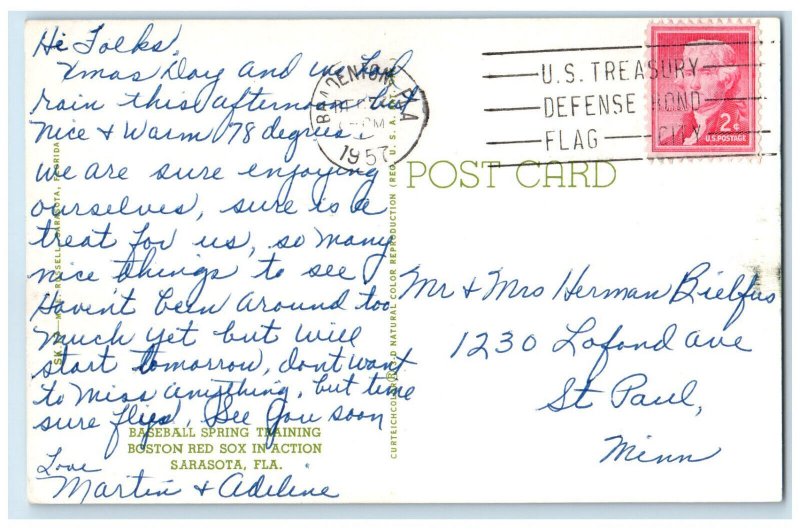 Hi Folks,
Xmas Day and we had
rain this afternoon but
Nice & Warm 78 degrees.
we are sure enjoying
ourselves, sure is a
treat for us, so many
nice things to see
Haven't been around too
much yet but will
start tomorrow, dont want
to Miss anything, but time
sure flys, See You soon
Love
Martin & Adeline
BASEBALL SPRING TRAINING
BOSTON RED SOX IN ACTION
SARASOTA, FLA.
RUSSELL, SARASOTA, FLORIDA
CURTEICHCOLOR 3-D NATURAL COLOR REPRODUCTION (REG. U.S.A.
BRADENTON FLA
PM
1957
U.S. TREASURY
DEFENSE BOND
FLAG CITY
2¢
U.S. POSTAGE
POST CARD
Mr & Mrs Herman Bielfus
1230 Lafond Ave
St Paul,
Minn